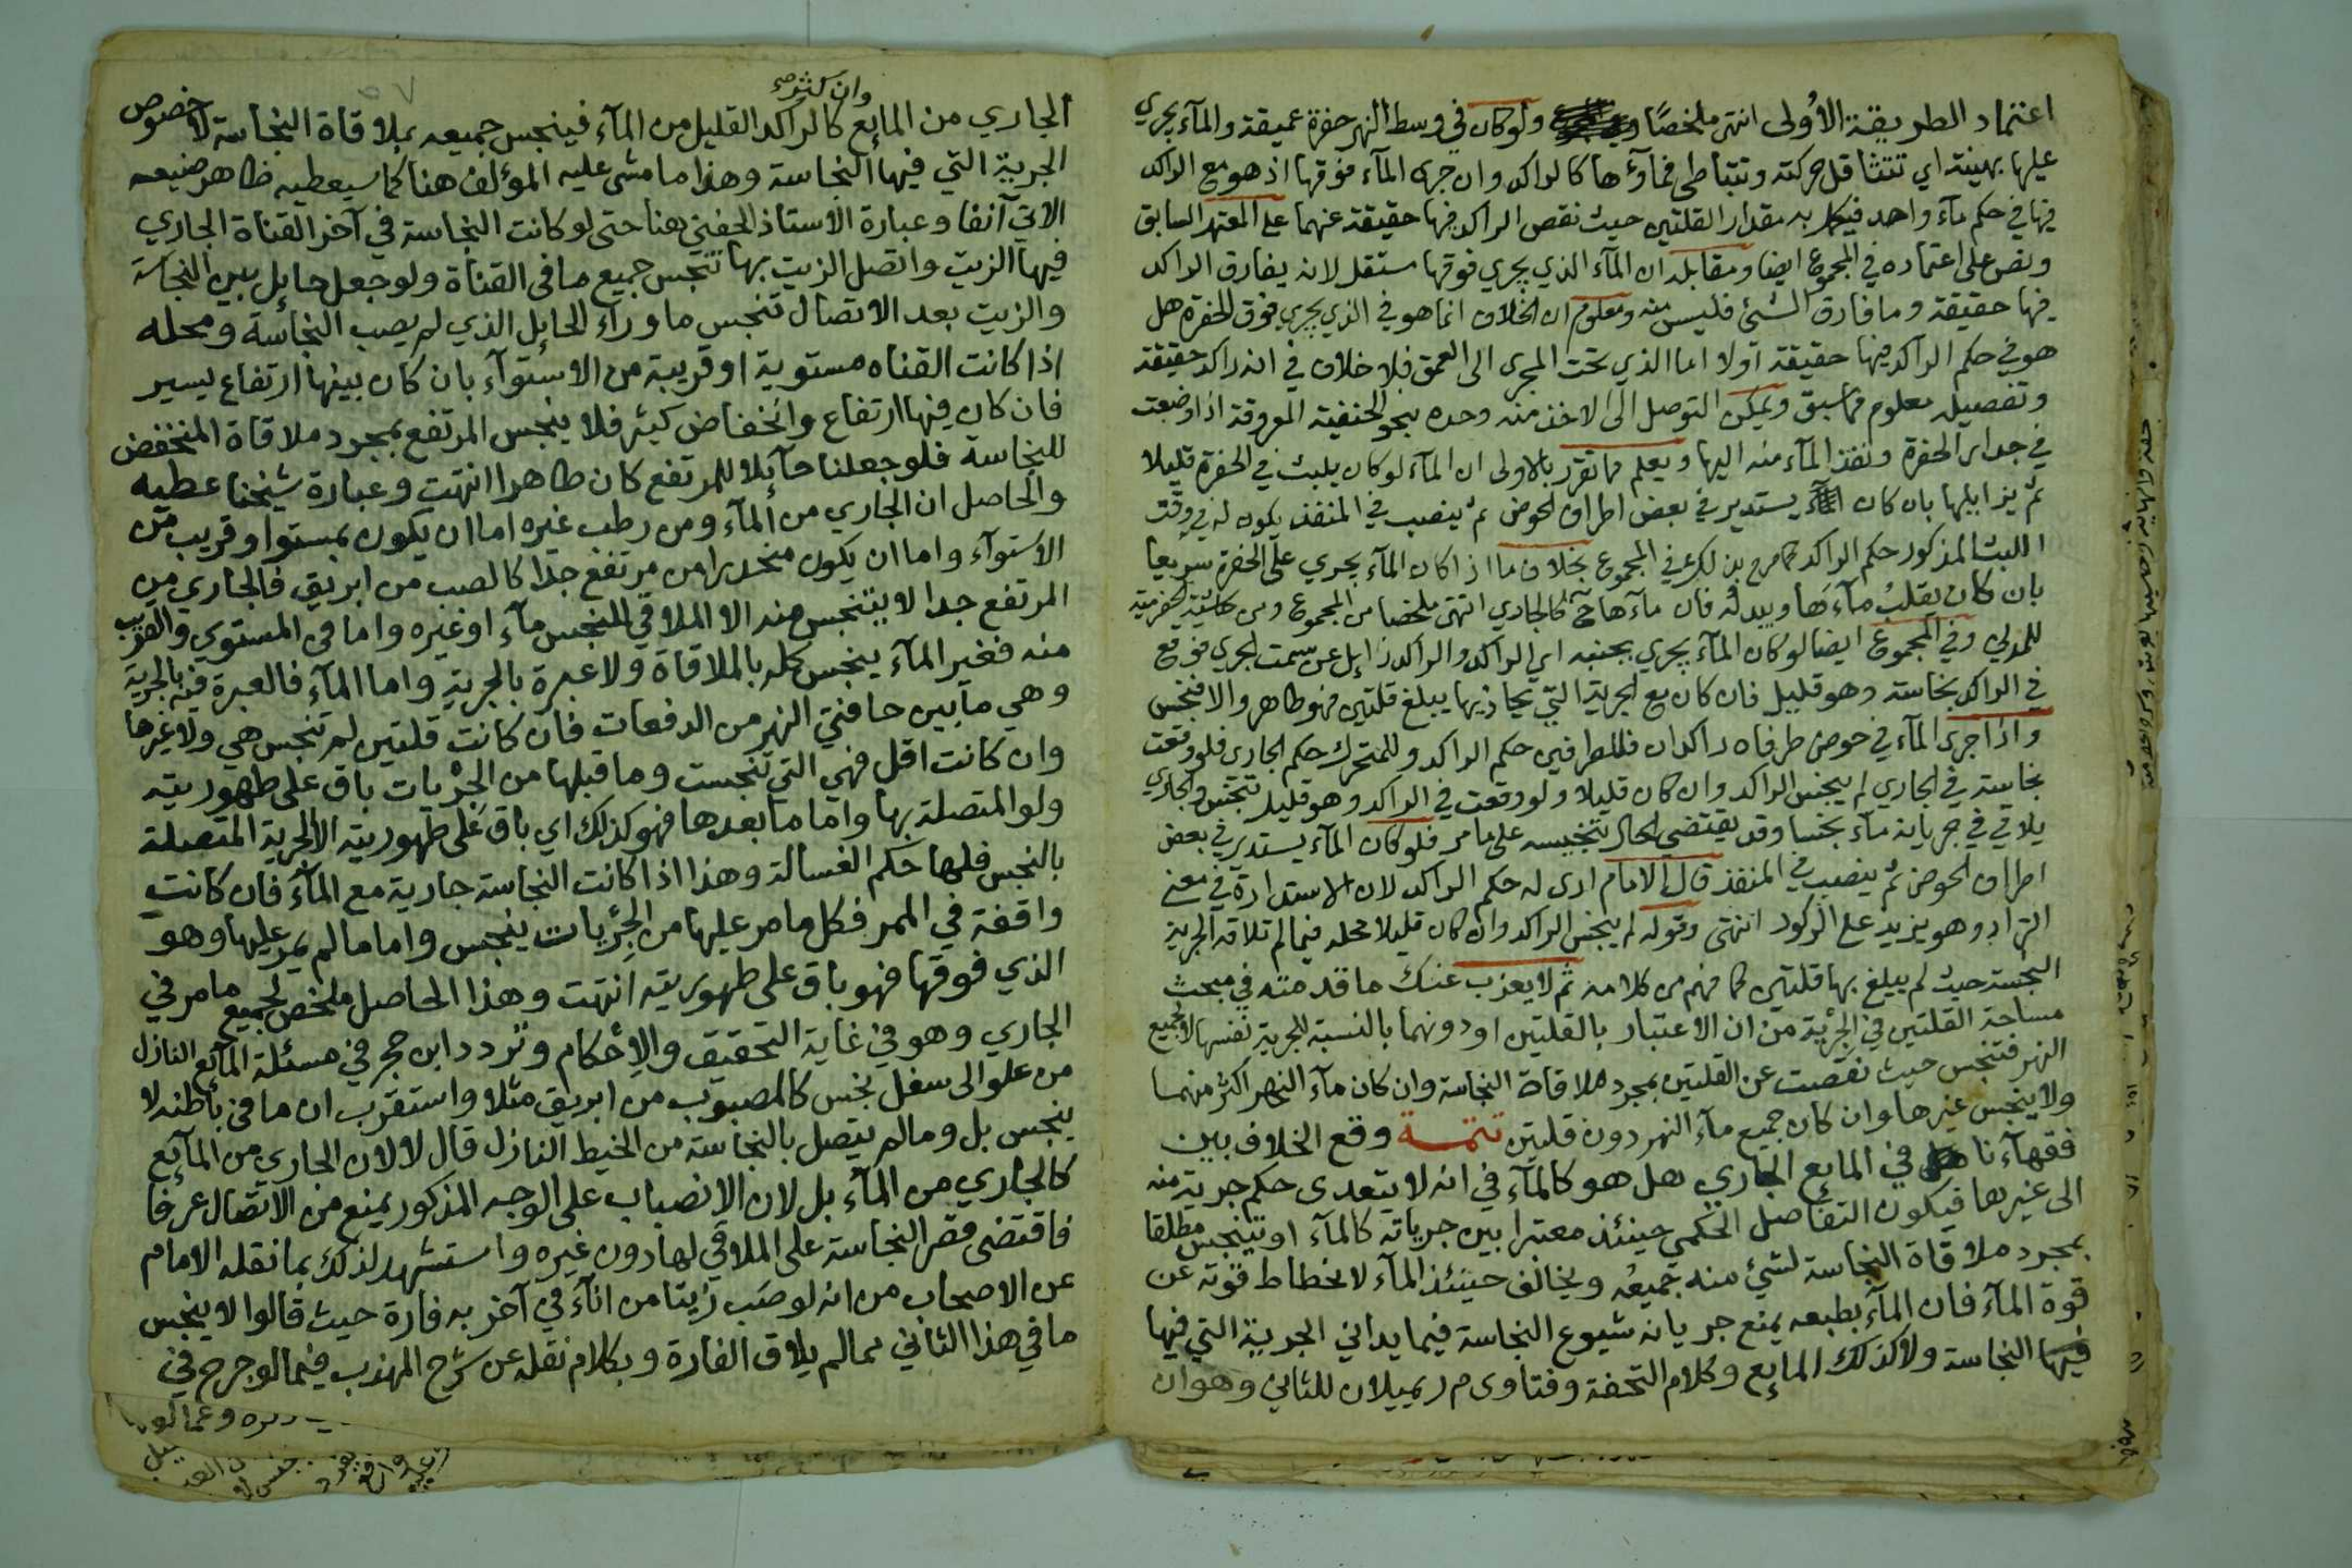 اعتماد الطريقة الأولى انتهى ملخصًا ولوكان في وسط النهر حفرة عميقة والمآء يجري
عليها بهينة اي تتثاقل حركته وتتباطى فمآؤها كالراكد وان جرى المآء فوقها اذ هو مع الراكد
فيها في حكم مآء واحد فيكمل به مقدار القلتين حيث نقص الراكد فيها حقيقة عنهما على المعتمد السابق
ونص على اعتماده في المجموع ايضا ومقابله ان المآء الذي يجري فوقها مستقل لانه يفارق الراكد
فيها حقيقة وما فارق الشئ فليس منه ومعلوم ان الخلاف انما هو في الذي يجري فوق الحفرة هل
هو في حكم الراكد فيها حقيقة اولا اما الذي تحت المجرى الى العمق فلا خلاف في انه راكد حقيقة
وتفصيله معلوم مما سبق ويمكن التوصل الى الاخذ منه وحده بنحو الحنفية المعروفة اذا وضعت
في جدار الحفرة ونفذ المآء منه اليها ويعلم مما تقرر بالاولى ان المآء لوكان يلبث في الحفرة قليلا
ثم يزايلها بان كان يستدير في بعض اطراف الحوض ثم ينصب في المنفذ يكون له في وقت
اللبث المذكور حكم الراكد كما صرح بذلك في المجموع بخلاف ما اذا كان المآء يجري على الحفرة سريعا
بان كان يقلبُ مآءَها ويبدله فان مآءها ح كالجاري انتهى ملخصا من المجموع ومن حاشية الحفرمية
للمدني وفي المجموع ايضا لوكان المآء يجري بجنبه اي الراكد والراكد زايل عن سمت الجري فوقع
في الراكد نجاسة وهو قليل فان كان مع الجرية التي يحاذيها يبلغ قلتين فهو طاهر والا فنجس
واذا جرى المآء في حوض طرفاه راكدان فللطرفين حكم الراكد وللمتحرك حكم الجاري فلو وقعت
نجاسة في الجاري لم ينجس الراكد وان كان قليلا ولو وقعت في الراكد وهو قليل تنجس والجاري
يلاقي في جريانه مآء نجسا وقد يقتضي الحال تنجيسه على ما مر فلوكان المآء يستدير في بعض
اطراف الحوض ثم ينصب في المنفذ قال الامام ارى له حكم الراكد لان الاستدارة في معنى
التراد وهو يزيد على الركود انتهى وقوله لم ينجس الراكد وان كان قليلا محله فيما لم تلاقه الجرية
النجسة حيث لم يبلغ بها قلتين كما فهم من كلامه ثم لا يعزب عنك ما قدمته في مبحث
مساحة القلتين في الجرية من ان الاعتبار بالقلتين او دونهما بالنسبة للجرية نفسها لا لجميع
النهر فتنجس حيث نقصت عن القلتين بمجرد ملاقاة النجاسة وان كان مآء النهر اكثر منهما
ولا ينجس غيرها وان كان جميع مآء النهر دون قلتين تتمة وقع الخلاف بين
فقهآءنا في المايع الجاري هل هو كالمآء في انه لا يتعدى حكم جرية منه
الى غيرها فيكون التفاصل الحكمي حينئذ معتبرا بين جرياته كالمآء او يتنجس مطلقا
بمجرد ملاقاة النجاسة لشئ منه جميعُه ويخالف حينئذ المآء لانحطاط قوته عن
قوة المآء فان المآء بطبعه يمنع جريانه شيوع النجاسة فيما يداني الجرية التي فيها
فيها النجاسة ولا كذلك المايع وكلام التحفة وفتاوى م ر يميلان للثاني وهو ان
وان كثر صح
الجاري من المايع كالراكد القليل من المآء فينجس جميعه بملاقاة النجاسة لا خصوص
الجرية التي فيها النجاسة وهذا ما مشى عليه المؤلف هنا كما سيعطيه ظاهر صنيعه
الاتي آنفا وعبارة الاستاذ الحفني هنا حتى لو كانت النجاسة في آخر القناة الجاري
فيها الزيت واتصل الزيت بها تنجس جميع ما في القناة ولو جعل حايل بين النجاسة
والزيت بعد الاتصال تنجس ما ورآء الحايل الذي لم يصب النجاسة ومحله
اذا كانت القناه مستوية او قريبة من الاستوآء بان كان بينها ارتفاع يسير
فان كان فيها ارتفاع وانخفاض كثير فلا ينجس المرتفع بمجرد ملاقاة المنخفض
للنجاسة فلو جعلنا حآئلا للمرتفع كان طاهرا انتهت وعبارة شيخنا عطيه
والحاصل ان الجاري من المآء ومن رطب غيره اما ان يكون بمستو او قريب من
الاستوآء واما ان يكون منحدرا من مرتفع جدا كالصب من ابريق فالجاري من
المرتفع جدا لا يتنجس منه الا الملاقي للنجس مآء او غيره واما في المستوي والقريب
منه فغير المآء ينجس كله بالملاقاة ولا عبرة بالجرية واما المآء فالعبرة فيه بالجرية
وهي ما بين حافتي النهر من الدفعات فان كانت قلتين لم تنجس هي ولا غيرها
وان كانت اقل فهي التي تنجست وما قبلها من الجريات باق على طهوريته
ولو المتصلة بها واما ما بعدها فهو كذلك اي باق على طهوريته الا الجرية المتصلة
بالنجس فلها حكم الغسالة وهذا اذا كانت النجاسة جارية مع المآء فان كانت
واقفة في الممر فكل ما مر عليها من الجريات ينجس واما ما لم يمر عليها وهو
الذي فوقها فهو باق على طهوريته انتهت وهذا الحاصل ملخص لجميع ما مر في
الجاري وهو في غاية التحقيق والاحكام وتردد ابن حجر في مسئلة المآئع النازل
من علو الى سفل نجس كالمصبوب من ابريق مثلا واستقرب ان ما في باطنه لا
ينجس بل وما لم يتصل بالنجاسة من الخيط النازل قال لا لان الجاري من المآئع
كالجاري من المآء بل لان الانصباب على الوجه المذكور يمنع من الاتصال عرفا
فاقتضى قصر النجاسة على الملاقي لها دون غيره واستشهد لذلك بما نقله الامام
عن الاصحاب من انه لو صب زيتا من انآء في آخر به فارة حيث قالوا لا ينجس
ما في هذا الثاني مما لم يلاق الفارة وبكلام نقله عن شرح المهذب فيما لو جرح في